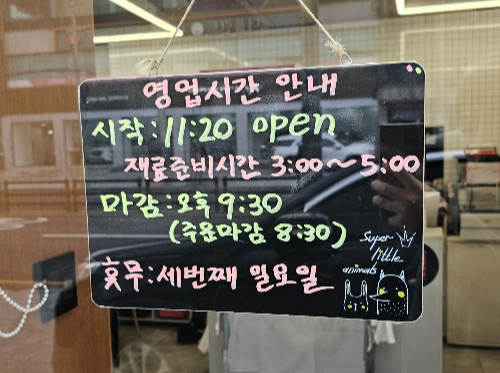 영업시간 안내
시작:11:20 open
재료준비시간 3:00~5:00
마감:오후 9:30
(주문마감 8:30)
휴무:세번째 일요일
Super
little
animals